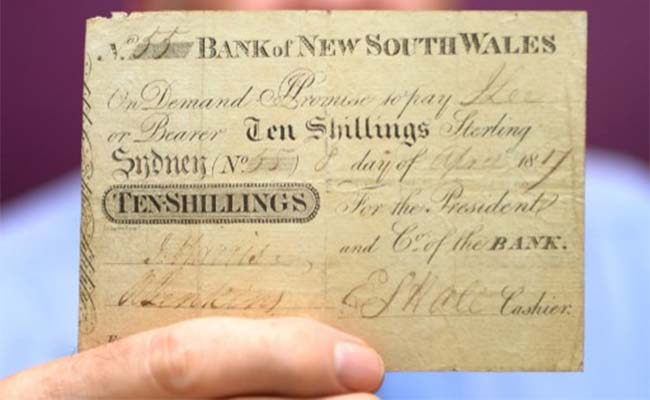 No. 55 BANK of NEW SOUTH WALES
On Demand I Promise to pay
or Bearer Ten Shillings Sterling
Sydney (No. 55) 8 day of April 1817
TEN-SHILLINGS For the President
and Co. of the BANK.
J Harris
R Jenkins E S Hall Cashier.